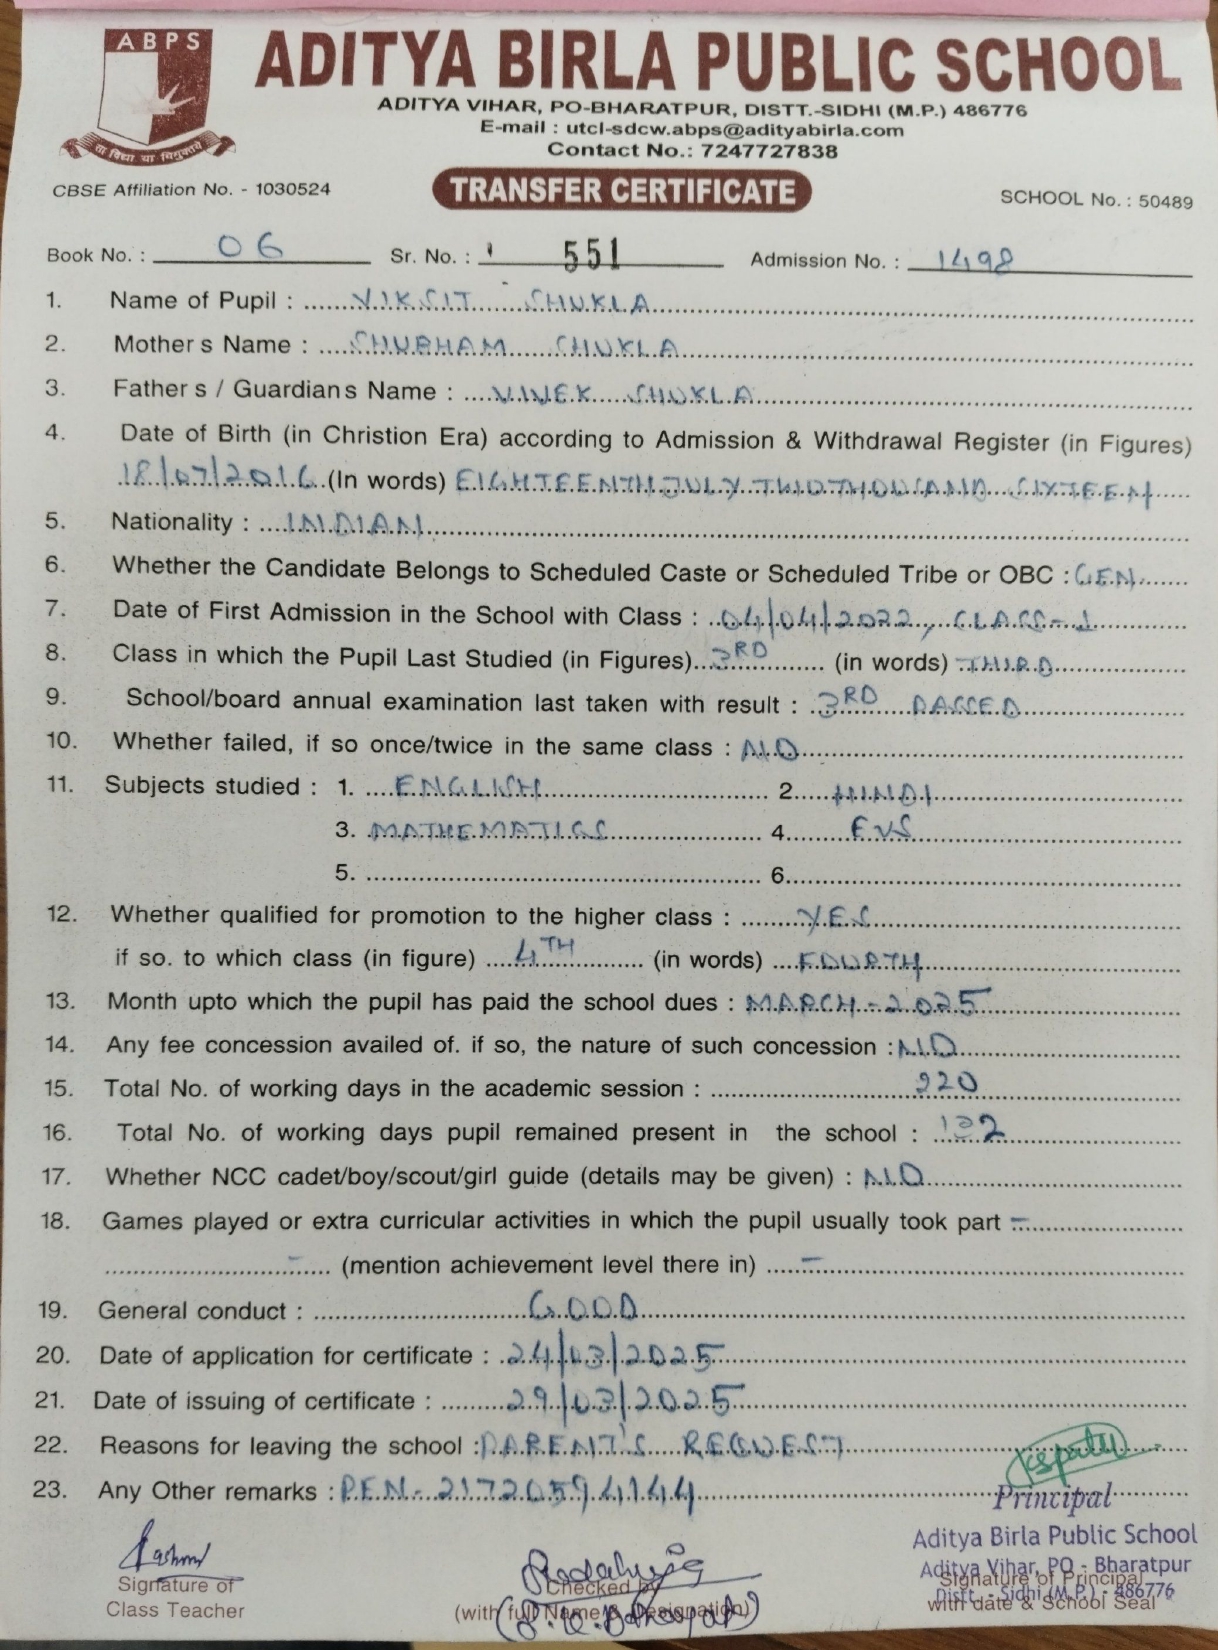 ABPS
सा विद्या या विमुक्तये
ADITYA BIRLA PUBLIC SCHOOL
ADITYA VIHAR, PO-BHARATPUR, DISTT.-SIDHI (M.P.) 486776
E-mail : utcl-sdcw.abps@adityabirla.com
Contact No.: 7247727838
CBSE Affiliation No. - 1030524 TRANSFER CERTIFICATE SCHOOL No. : 50489
Book No. : 06 Sr. No. : 551 Admission No. : 1498
1. Name of Pupil : VIKSIT SHUKLA
2. Mother s Name : SHUBHAM SHUKLA
3. Father s / Guardians Name : VIVEK SHUKLA
4. Date of Birth (in Christion Era) according to Admission & Withdrawal Register (in Figures)
18/07/2016 (In words) EIGHTEENTH JULY TWO THOUSAND SIXTEEN
5. Nationality : INDIAN
6. Whether the Candidate Belongs to Scheduled Caste or Scheduled Tribe or OBC : GEN
7. Date of First Admission in the School with Class : 04/04/2022, CLASS-I
8. Class in which the Pupil Last Studied (in Figures) 3RD (in words) THIRD
9. School/board annual examination last taken with result : 3RD PASSED
10. Whether failed, if so once/twice in the same class : NO
11. Subjects studied : 1. ENGLISH 2. HINDI
3. MATHEMATICS 4. EVS
5. 6.
12. Whether qualified for promotion to the higher class : YES
if so. to which class (in figure) 4TH (in words) FOURTH
13. Month upto which the pupil has paid the school dues : MARCH-2025
14. Any fee concession availed of. if so, the nature of such concession : NO
15. Total No. of working days in the academic session : 220
16. Total No. of working days pupil remained present in the school :
17. Whether NCC cadet/boy/scout/girl guide (details may be given) : NO
18. Games played or extra curricular activities in which the pupil usually took part -
- (mention achievement level there in) -
19. General conduct : GOOD
20. Date of application for certificate : 24/03/2025
21. Date of issuing of certificate : 29/03/2025
22. Reasons for leaving the school : PARENT'S REQUEST
23. Any Other remarks : PEN-21720594144
Principal
Aditya Birla Public School
Aditya Vihar, PO - Bharatpur
Distt. - Sidhi (M.P.) - 486776
Signature of
Class Teacher
Checked by
(with full Name & Designation)
Signature of Principal
with date & School Seal